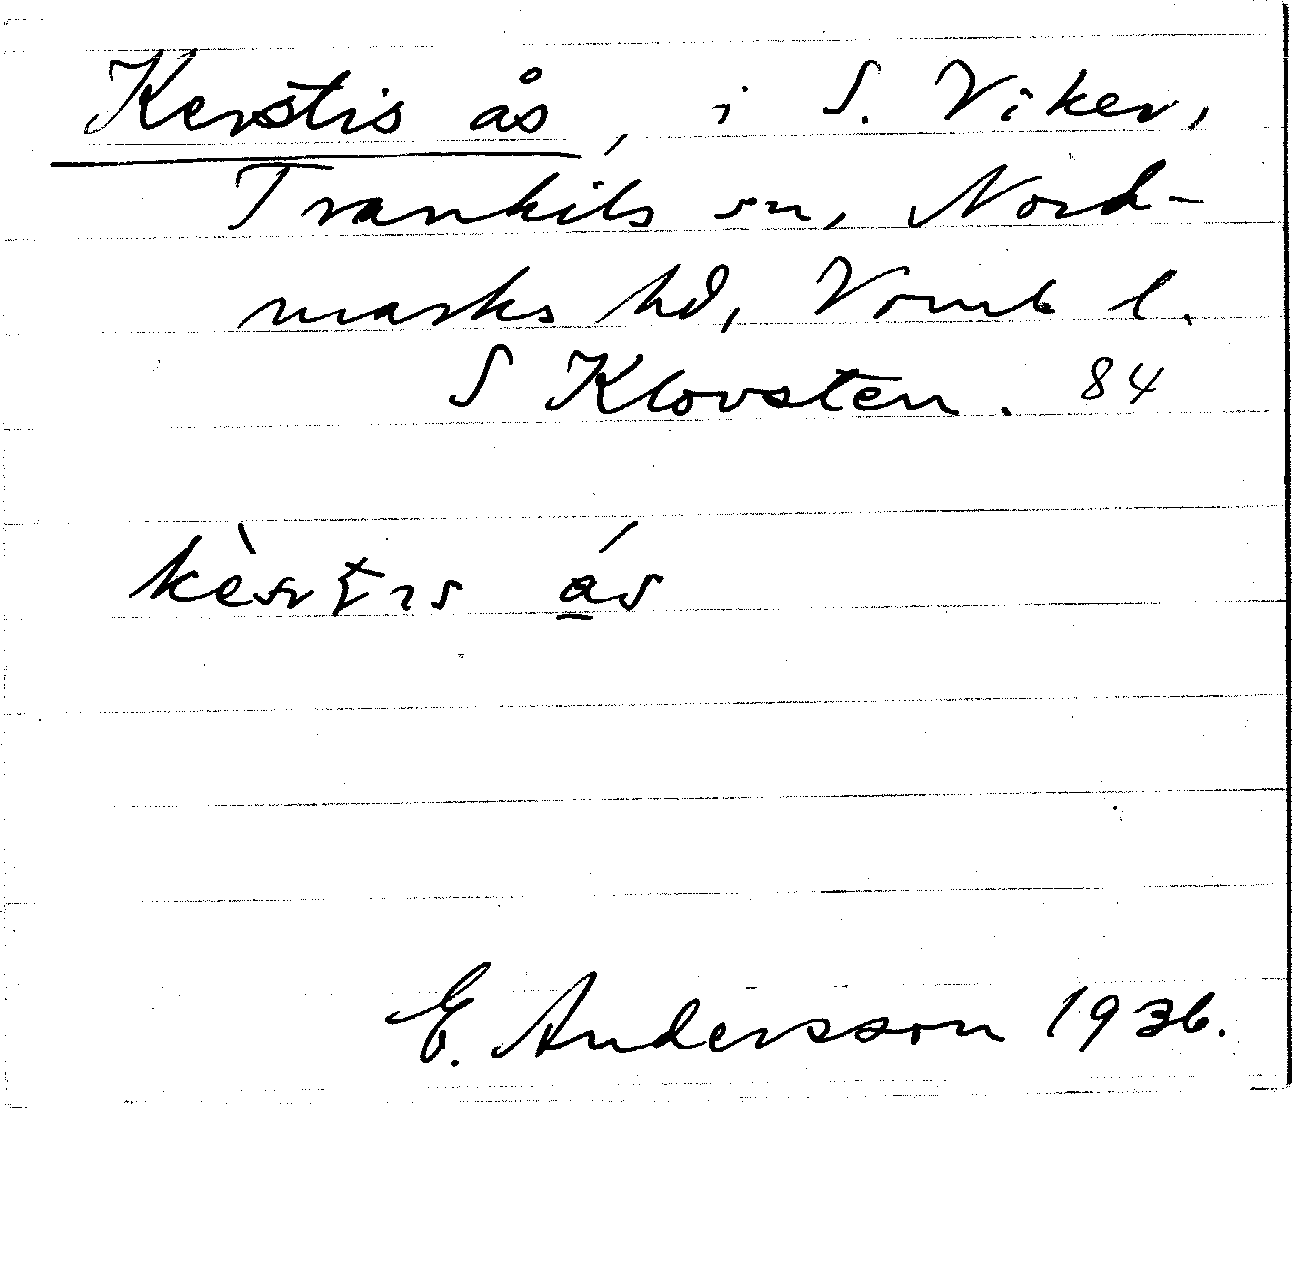 Kerstis ås, i S. Viker,
Trankils sn, Nord-
marks hd, Vrml l.
S Klovsten. 84
E. Andersson 1936.